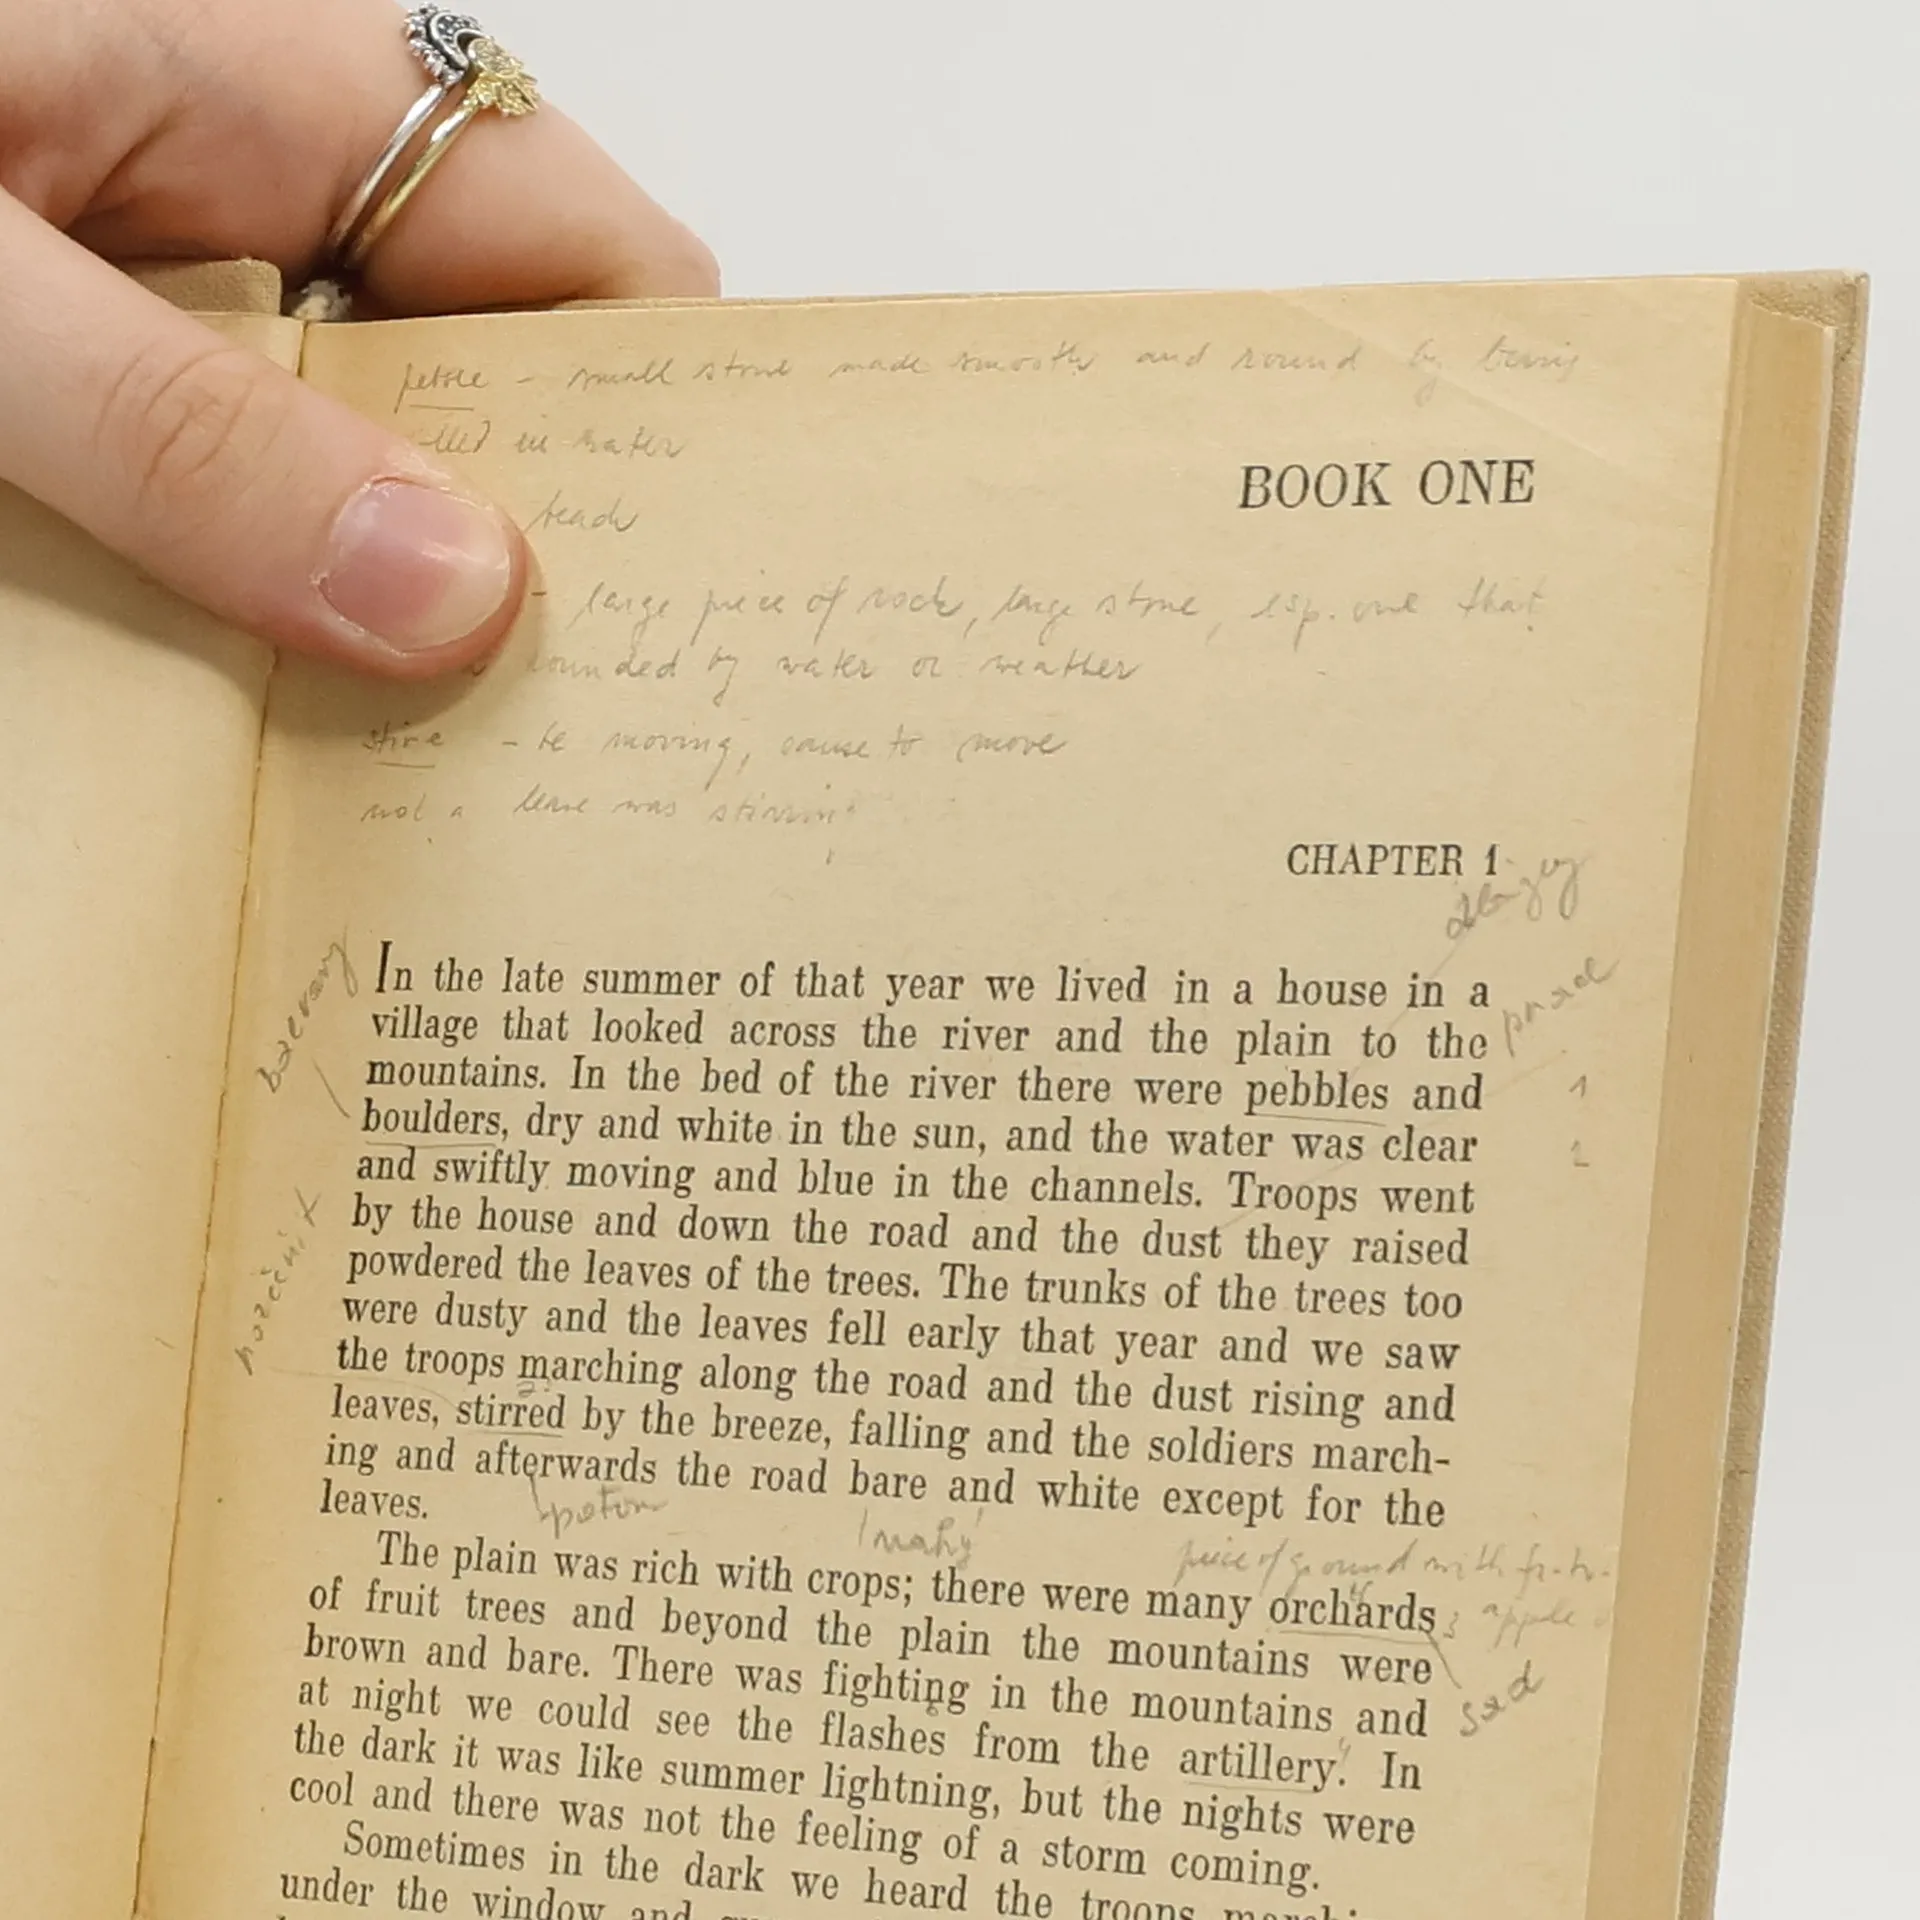 pebble - small stone made smooth and round by being
in water
BOOK ONE
beach
- large piece of rock, large stone, esp. one that
rounded by water or weather
stire - be moving, cause to move
not a leave was
CHAPTER 1
In the late summer of that year we lived in a house in a
village that looked across the river and the plain to the
mountains. In the bed of the river there were pebbles and
1
boulders, dry and white in the sun, and the water was clear
2
and swiftly moving and blue in the channels. Troops went
by the house and down the road and the dust they raised
powdered the leaves of the trees. The trunks of the trees too
were dusty and the leaves fell early that year and we saw
the troops marching along the road and the dust rising and
leaves, stirred by the breeze, falling and the soldiers march-
ing and afterwards the road bare and white except for the
leaves.
potom
nahý
piece of ground with fr. tr.
The plain was rich with crops; there were many orchards
3 apple
of fruit trees and beyond the plain the mountains were
brown and bare. There was fighting in the mountains and
sad
at night we could see the flashes from the artillery. In
the dark it was like summer lightning, but the nights were
cool and there was not the feeling of a storm coming.
Sometimes in the dark we heard the troops
under the window and